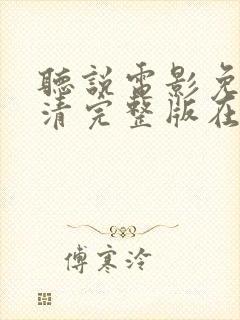 聽說電影免
清完整版在
傅寒泠